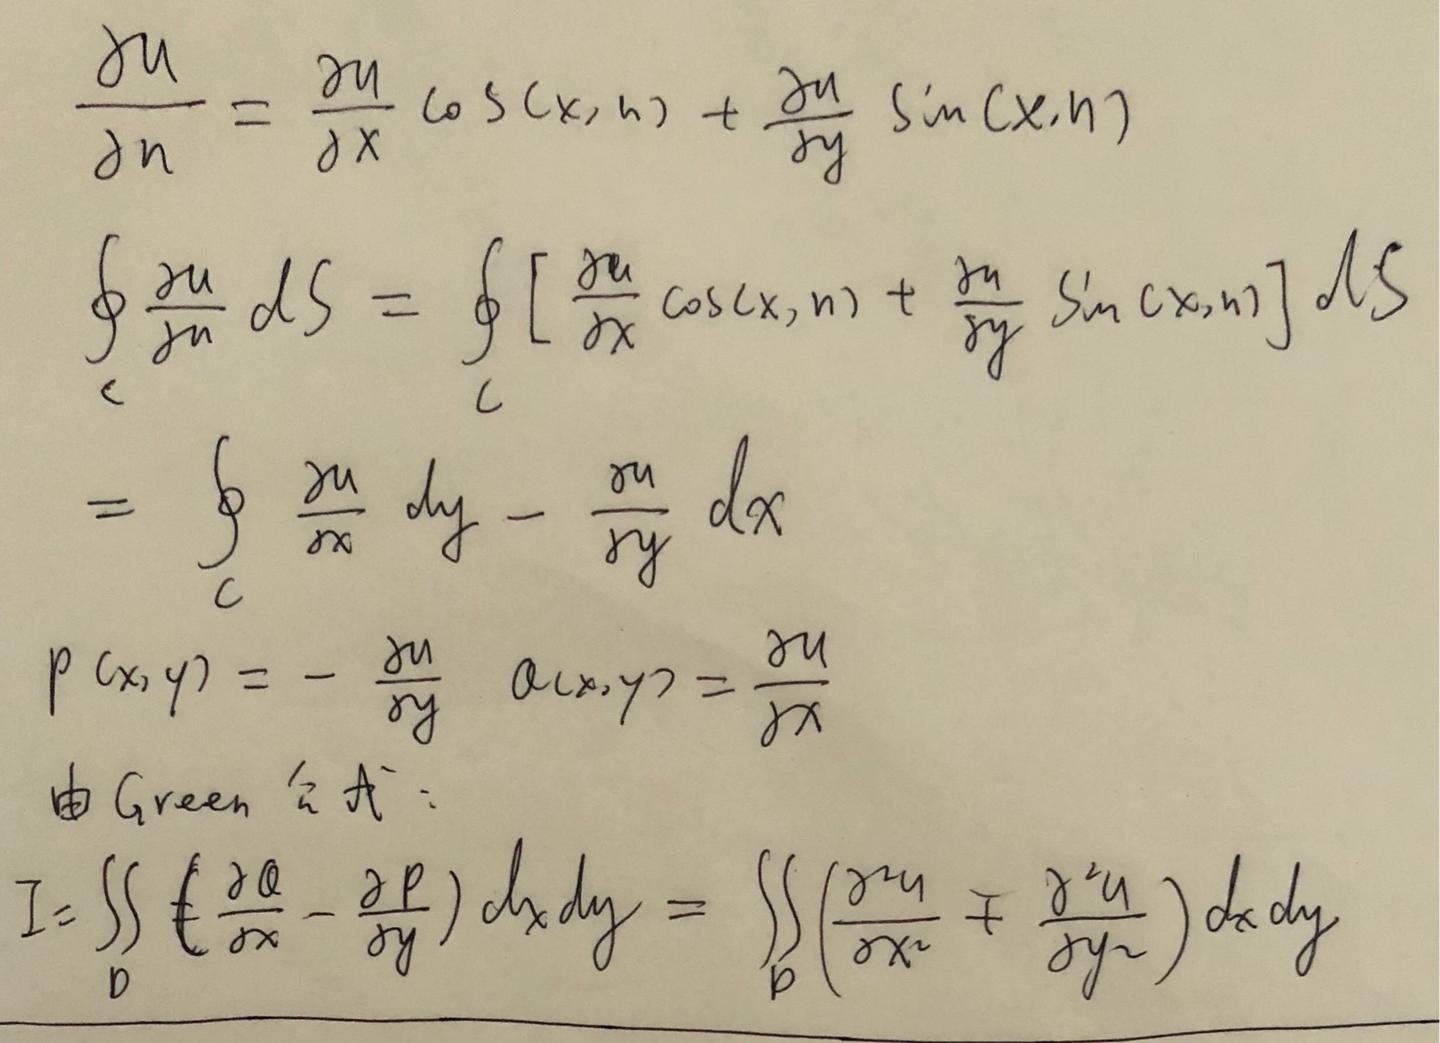 ∂u/∂n = ∂u/∂x cos(x,n) + ∂u/∂y sin(x,n)
∮_C ∂u/∂n dS = ∮_C [∂u/∂x cos(x,n) + ∂u/∂y sin(x,n)] dS
= ∮_C ∂u/∂x dy - ∂u/∂y dx
P(x,y) = - ∂u/∂y Q(x,y) = ∂u/∂x
由 Green 公式:
I = ∬_D (∂Q/∂x - ∂P/∂y) dxdy = ∬_D (∂²u/∂x² + ∂²u/∂y²) dxdy